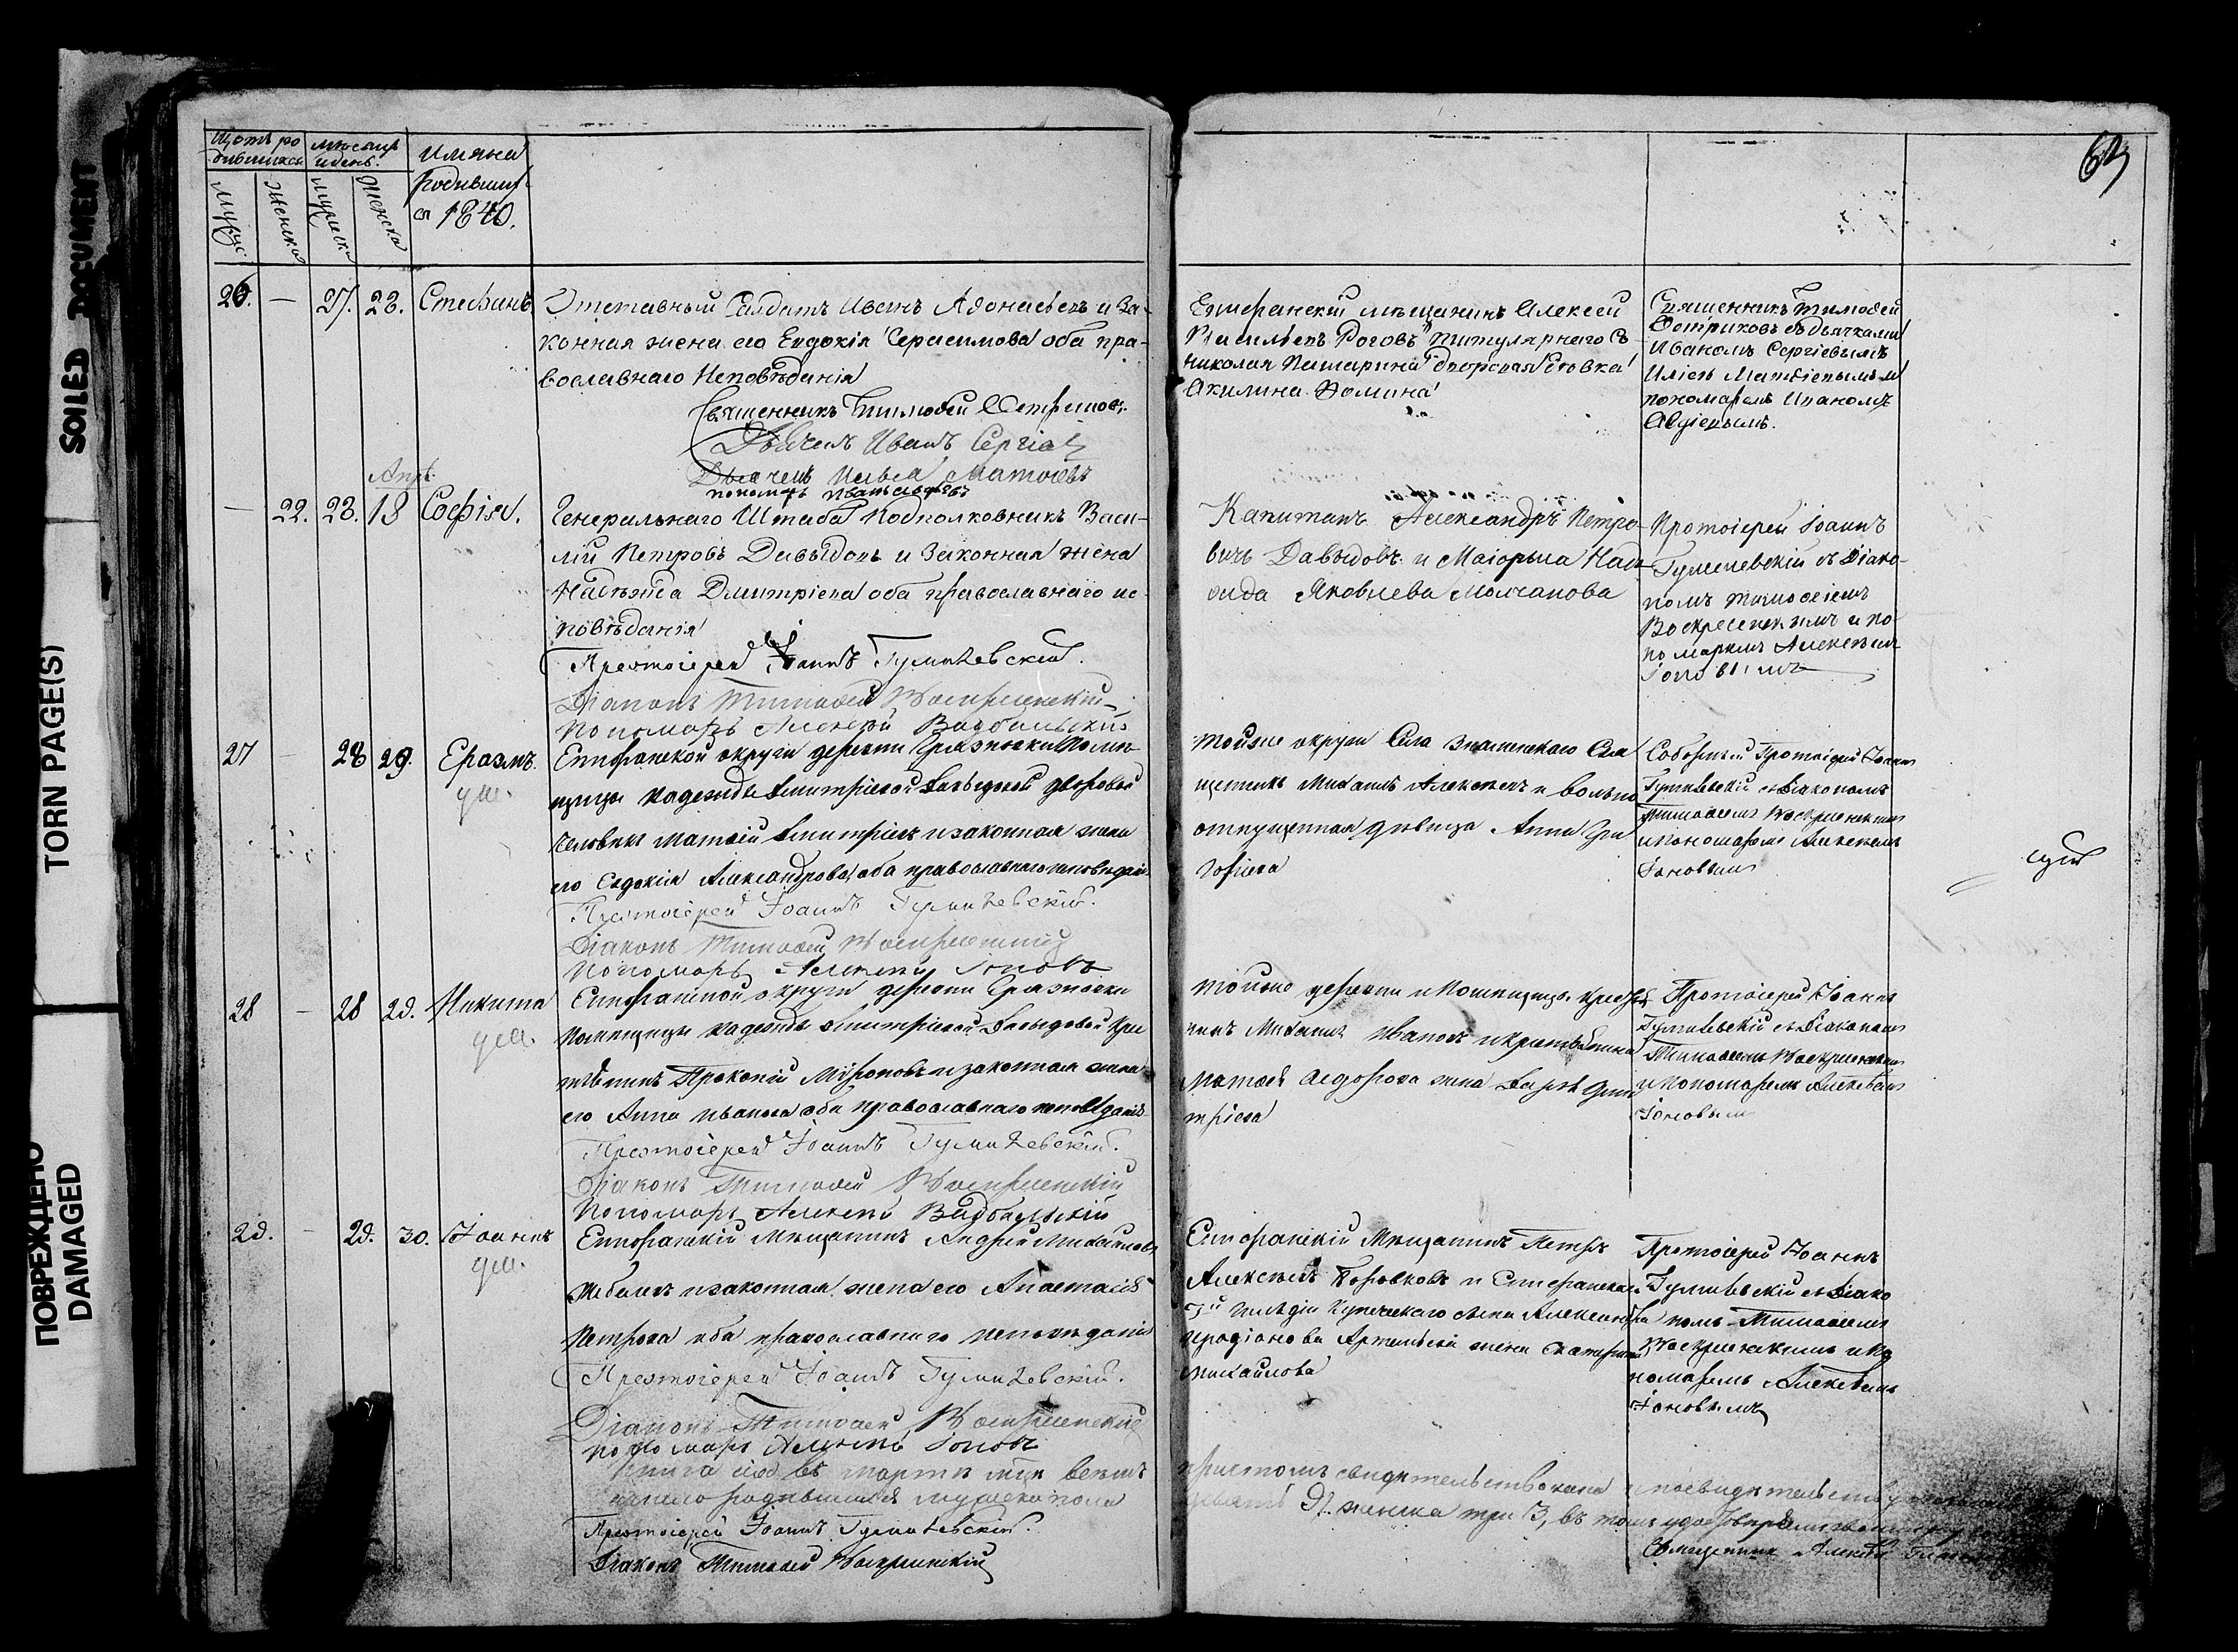 SOILED DOCUMENT
TORN PAGE(S)
ПОВРЕЖДЕНО
DAMAGED
Щотъ ро
дившихся
мѣсяцъ
и день.
Имяна
родивших
ся 1840.
Мужес
Женска
Мужеска
Женска
26. — 27. 28. Стефанъ
Отставный Салдатъ Иванъ Афонасьевъ и за-
конная жена его Евдокія Герасимова оба пра-
вославнаго Исповѣданія
Священникъ Тимофей Остриков
Дьячекъ Иванъ Сергіев
Дьячекъ Илья Матфіевъ
пономарь Иванъ Авдіевъ
Епифанскій мѣщанинъ Алексей
Васильевъ Роговъ Титулярнаго Сов
Николая дворовая вдовка
Акилина Фомина
Священникъ Тимофей
Остриковъ съ дьячками
Иваномъ Сергіевымъ
Иліею Матфіевымъ и
пономаремъ Иваномъ
Авдіевымъ.
Апр.
— 22. 23. 18 Софія.
Генеральнаго Штаба Подполковникъ Васи-
лій Петровъ Давыдовъ и Законная жена
Надежда Димитріева оба православнаго ис-
повѣданія
Протоіерей Іоаннъ Гумилевскій.
Діаконъ Тимофей Воскресенскій
Пономарь Алексей
Капитанъ Александръ Петро-
вичъ Давыдовъ и Маіорша
Яковлева Молчанова
Протоіерей Іоаннъ
Гумилевскій съ Діако-
номъ Тимофеемъ
Воскресенскимъ и по-
номаремъ Алексеемъ
Іоновымъ
27 — 28 29. Еразмъ.
ум.
Епифанской округи деревни Грязновки Помѣ-
щицы Надежды Димитріевой Давыдовой дворовой
человѣкъ Матвій Димитріевъ и законная жена
его Евдокія Александрова оба православнаго исповѣданія
Протоіерей Іоаннъ Гумилевскій.
Діаконъ Тимофей Воскресенскій
Пономарь Алексей Іоновъ
Той же округи Села Знаменскаго
Михаилъ Алексеевъ и вольно
отпущенная дѣвица Анна Гри
горіева
Соборный Протоіерей Іоаннъ
Гумилевскій съ Діакономъ
Тимофеемъ Воскресенскимъ
и Пономаремъ Алексеемъ
Іоновымъ
28 — 28 29. Никита
ум.
Епифанской округи деревни Грязновки
Помѣщицы Надежды Димитріевой Давыдовой Кре
стьянинъ Прокопій Міроновъ и законная жена
его Анна Иванова оба православнаго исповѣданія
Протоіерей Іоаннъ Гумилевскій.
Діаконъ Тимофей Воскресенскій
Пономарь Алексей
Той же деревни и Помещицы Крестья
нинъ Михаилъ Ивановъ и крестьянина
Матфея Федорова жена Дарья Дими
тріева
Протоіерей Іоаннъ
Гумилевскій съ Діакономъ
Тимофеемъ Воскресенскимъ
и Пономаремъ Алексеемъ
Іоновымъ
29. — 29. 30. Іоаннъ
ум.
Епифанскій Мѣщанинъ Андрей Михайловъ
и законная жена его Анастасія
Петрова оба православнаго исповѣданія
Протоіерей Іоаннъ Гумилевскій.
Діаконъ Тимофей Воскресенскій
пономарь Алексей Іоновъ
Епифанскій Мѣщанинъ Петръ
Алексеевъ Боровковъ и Епифанскаго
3й гильдіи Купеческаго сына Александра
жена Екатерина
Михайлова
Протоіерей Іоаннъ
Гумилевскій съ Діако
номъ Тимофеемъ
Воскресенскимъ и По
номаремъ Алексеемъ
Іоновымъ
книга сія въ мартѣ
число родившихся мужеска пола
свидетельствована
9, женска три 3, въ томъ
Протоіерей Іоаннъ Гумилевскій.
Діаконъ Тимофей Воскресенскій
Священникъ Алексей